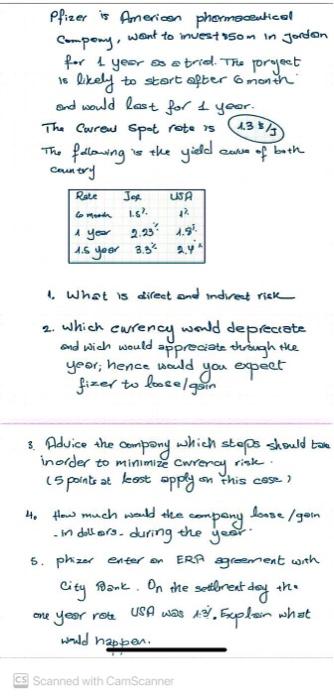 Pfizer is American pharmaceutical
Company, want to invest $50m in Jordan
for 1 year as a trial. The porject
is likely to start after 6 month
and would last for 1 year.
The Current Spot rate is 1.3 $/J
The following is the yield curve of both
country
Rate Jor USA
6 month 1.5% 1%
1 year 2.23% 1.8%
1.5 year 3.3% 2.4%
1. What is direct and indirect risk
2. which currency would depreciate
and wich would appreciate through the
year, hence would you expect
fizer to loose/gain
3. Advice the company which steps should take
inorder to minimize currency risk.
(5 points at least apply on this case)
4. How much would the company loose/gain
- in dollars - during the year.
5. phizer enter on ERA agreement with
City Bank. On the day the
one year rate USA was . Explain what
would happen.
CS Scanned with CamScanner